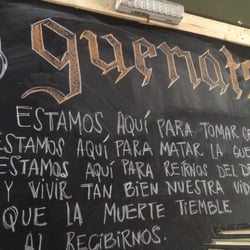 guenats
ESTAMOS AQUÍ PARA TOMAR
ESTAMOS AQUÍ PARA MATAR LA GUE
ESTAMOS AQUÍ PARA REÍRNOS DEL DE
Y VIVIR TAN BIEN NUESTRA VID
QUE LA MUERTE TIEMBLE
AL RECIBIRNOS.